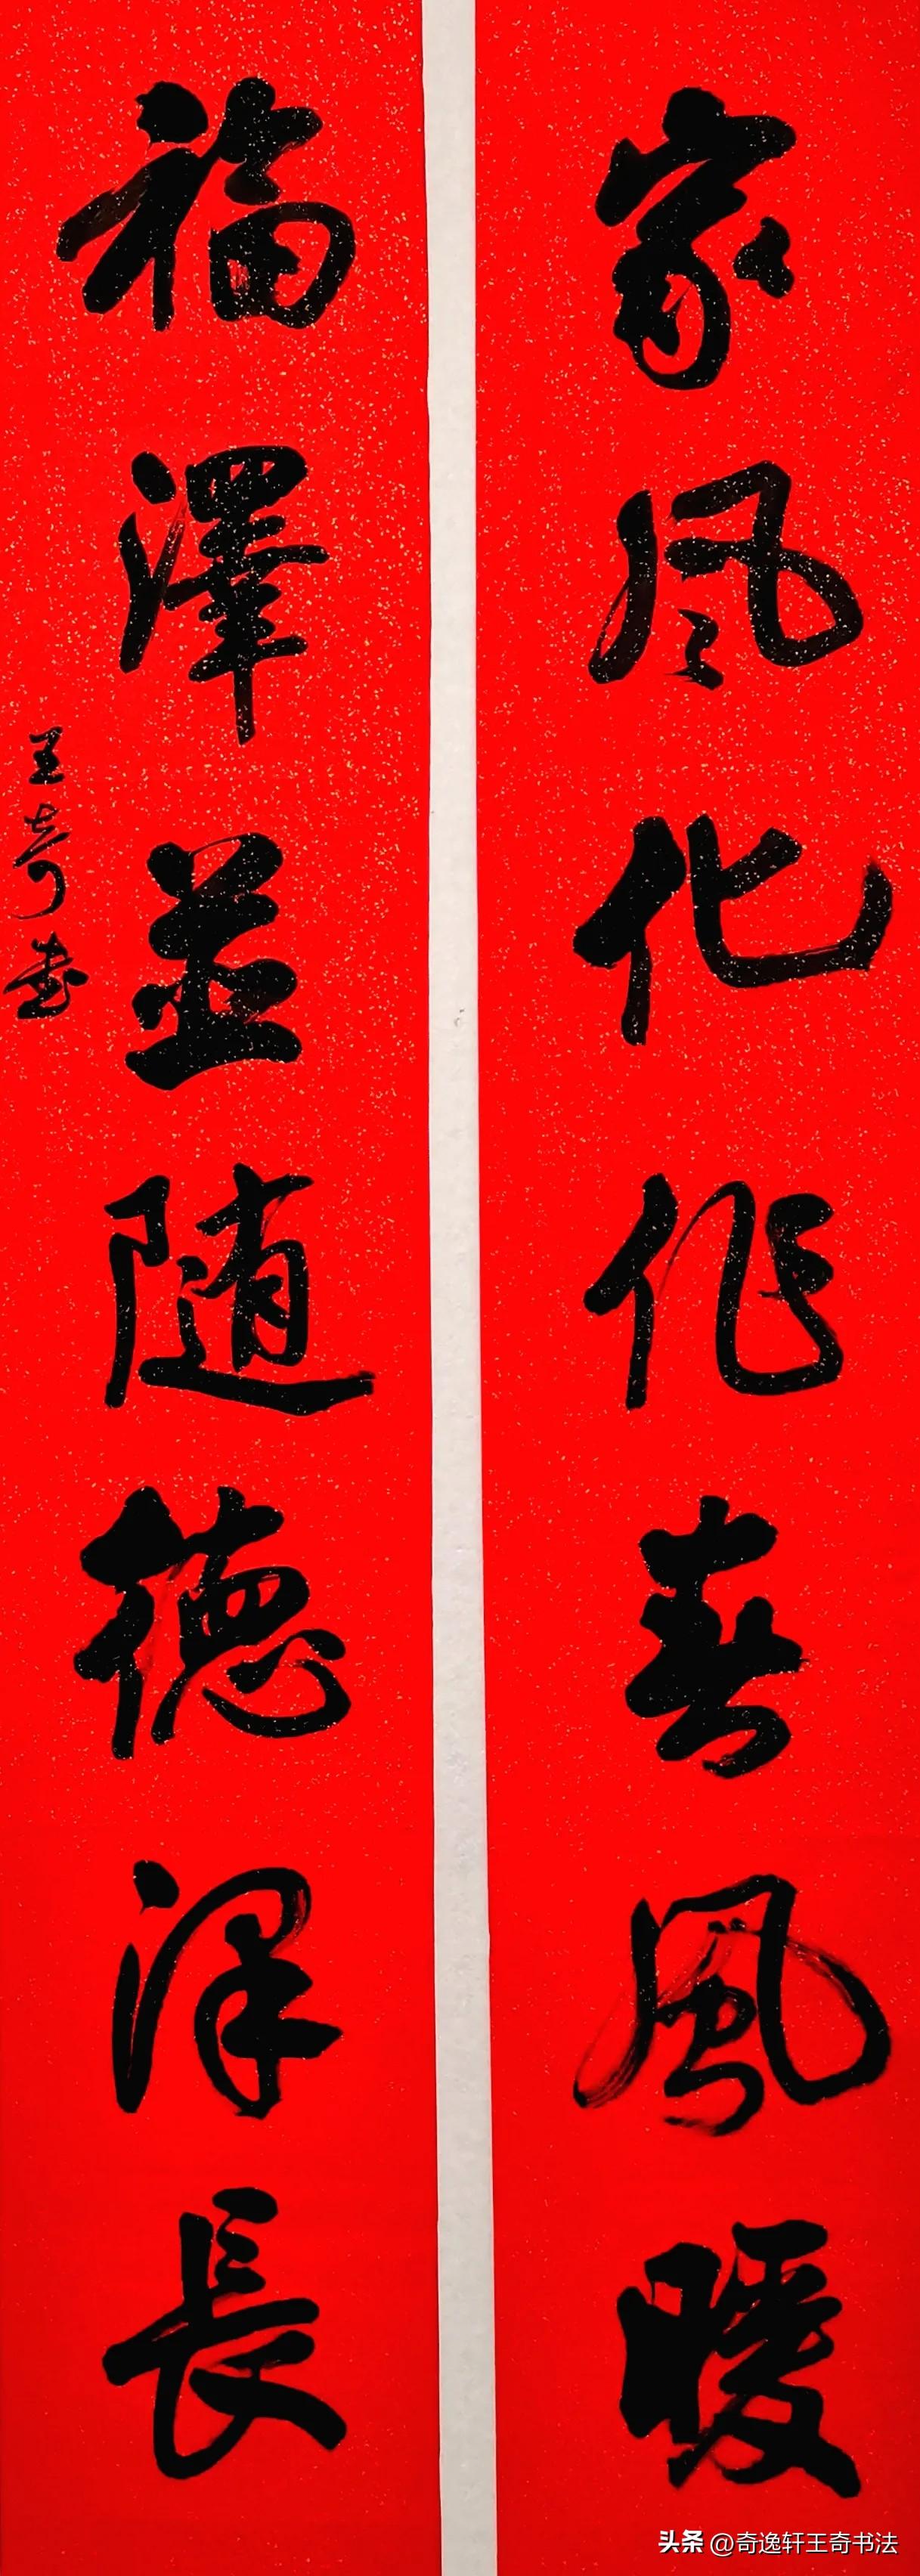 家风化作春風暖
福澤並随德泽長
王奇书
头条 @奇逸轩王奇书法